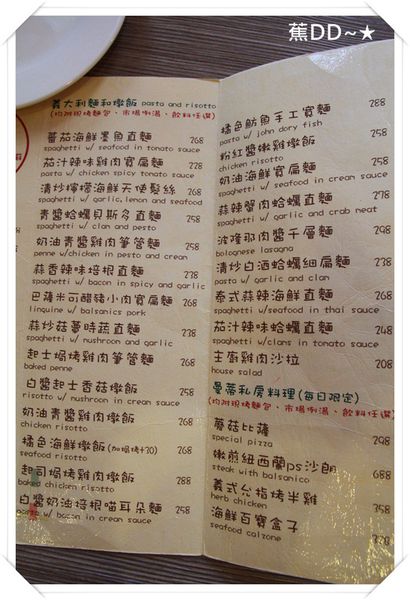 蕉DD~★
義大利麵和燉飯 pasta and risotto
(均附現烤麵包、市場例湯、飲料任選)
蕃茄海鮮墨魚直麵 268
spaghetti w/ seafood in tomato sauce
茄汁辣味雞肉寬扁麵 238
pasta w/ chicken spicy tomato sauce
清炒檸檬海鮮天使髮絲 268
spaghetti w/ garlic,lemon and seafood
青醬蛤蠣貝斯多直麵 258
spaghetti w/ clan and pesto
奶油青醬雞肉筆管麵 258
penne w/chicken in pesto and crean
蒜香辣味培根直麵 238
spaghetti w/ bacon in spicy and garlic
巴薩米可醋豬小肉寬扁麵 268
linguine w/ balsanics pork
蒜炒菇蕈時蔬直麵 238
spaghetti w/ nushroon and garlic
起士焗烤雞肉筆管麵 268
baked penne
白醬起士香菇燉飯 258
risotto w/ nushroon in crean sauce
奶油青醬雞肉燉飯 268
chicken risotto
橘色海鮮燉飯(加焗烤+30) 268
seafood risotto
起司焗烤雞肉燉飯 288
baked chicken risotto
白醬奶油培根喵耳朵麵 258
pasta w/ bacon in crean sauce
橘色魴魚手工寬麵 288
pasta w/ john dory fish
粉紅醬嫩雞燉飯 258
chicken risotto
奶油海鮮寬扁麵 258
spaghetti w/ seafood in crean sauce
蒜辣蟹肉蛤蠣直麵 268
spaghetti w/ garlic and crab neat
波隆那肉醬千層麵 298
bolognese lasagna
清炒白酒蛤蠣細扁麵 238
pasta w/ garlic and clan
泰式蒜辣海鮮直麵 298
spaghetti w/seafood in thai sauce
茄汁辣味蛤蠣直麵 248
spaghetti w/clans in tomato sauce
主廚雞肉沙拉 208
house salad
曼蒂私房料理(每日限定)
(均附現烤麵包、市場例湯、飲料任選)
蘑菇比薩 298
special pizza
嫩煎紐西蘭ps沙朗 688
steak with balsanico
義式允指烤半雞 368
herb chicken
海鮮百寶盒子 358
seafood calzone